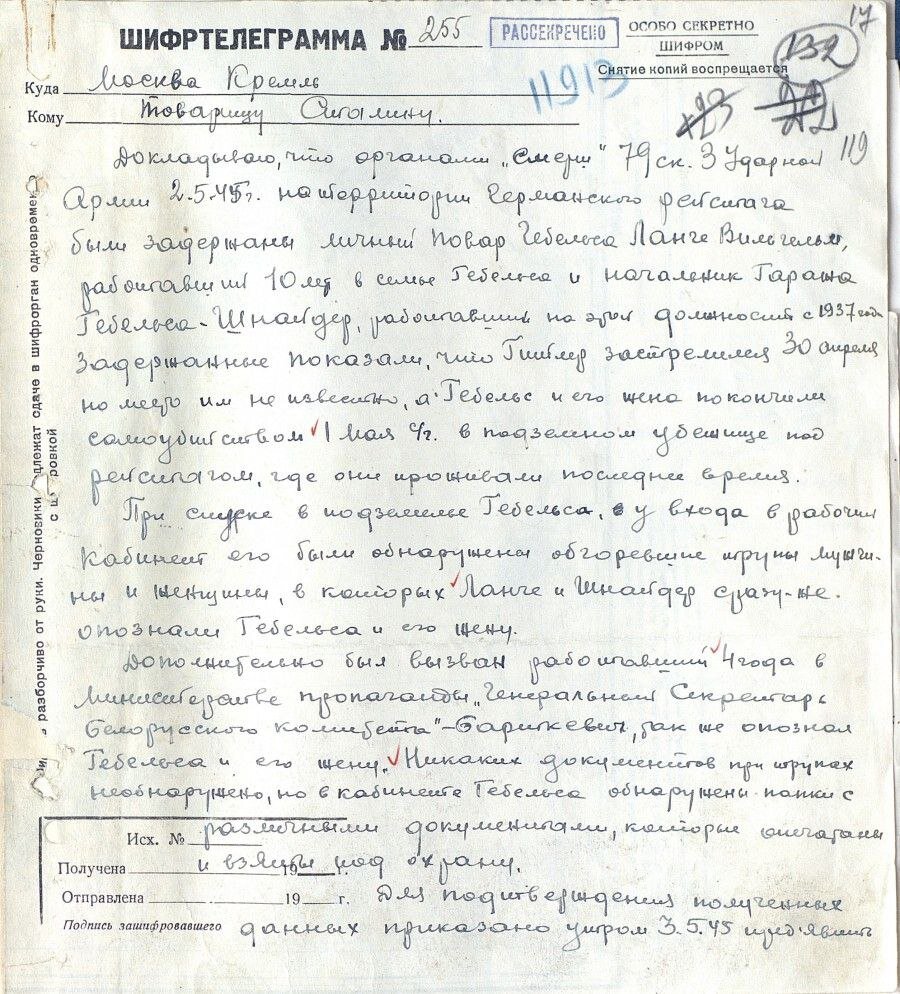 17
ШИФРТЕЛЕГРАММА № 255
РАССЕКРЕЧЕНО
ОСОБО СЕКРЕТНО
ШИФРОМ
Снятие копий воспрещается
132
11913
23
22
119
Куда Москва Кремль
Кому Товарищу Сталину.
Докладываю, что органами „Смерш" 79 ск. 3 Ударной
Армии 2.5.45г. на территории Германского рейхстага
были задержаны личный повар Гебельса Ланге Вильгельм,
работавший 10 лет в семье Гебельса и начальник Гаража
Гебельса - Шнайдер, работавший на этой должности с 1937 года
Задержанные показали, что Гитлер застрелился 30 апреля
но место им не известно, а Гебельс и его жена покончили
самоубийством 1 мая с/г. в подземном убежище под
рейхстагом, где они проживали последнее время.
При спуске в подземелье Гебельса, у входа в рабочий
кабинет его были обнаружены обгоревшие трупы мужчи-
ны и женщины, в которых Ланге и Шнайдер сразу-же
опознали Гебельса и его жену.
Дополнительно был вызван работавший 4 года в
Министерстве пропаганды „Генеральный Секретарь
Белорусского комитета" - так же опознал
Гебельса и его жену. Никаких документов при трупах
необнаружено, но в кабинете Гебельса обнаружены папки с
различными документами, которые опечатаны
и взяты под охрану.
Для подтверждения полученных
данных приказано утром 3.5.45 предъявить
Исх. №
Получена 19 г.
Отправлена 19 г.
Подпись зашифровавшего
разборчиво от руки. Черновики длежат сдаче в шифрорган одновремен
с ш ровкой